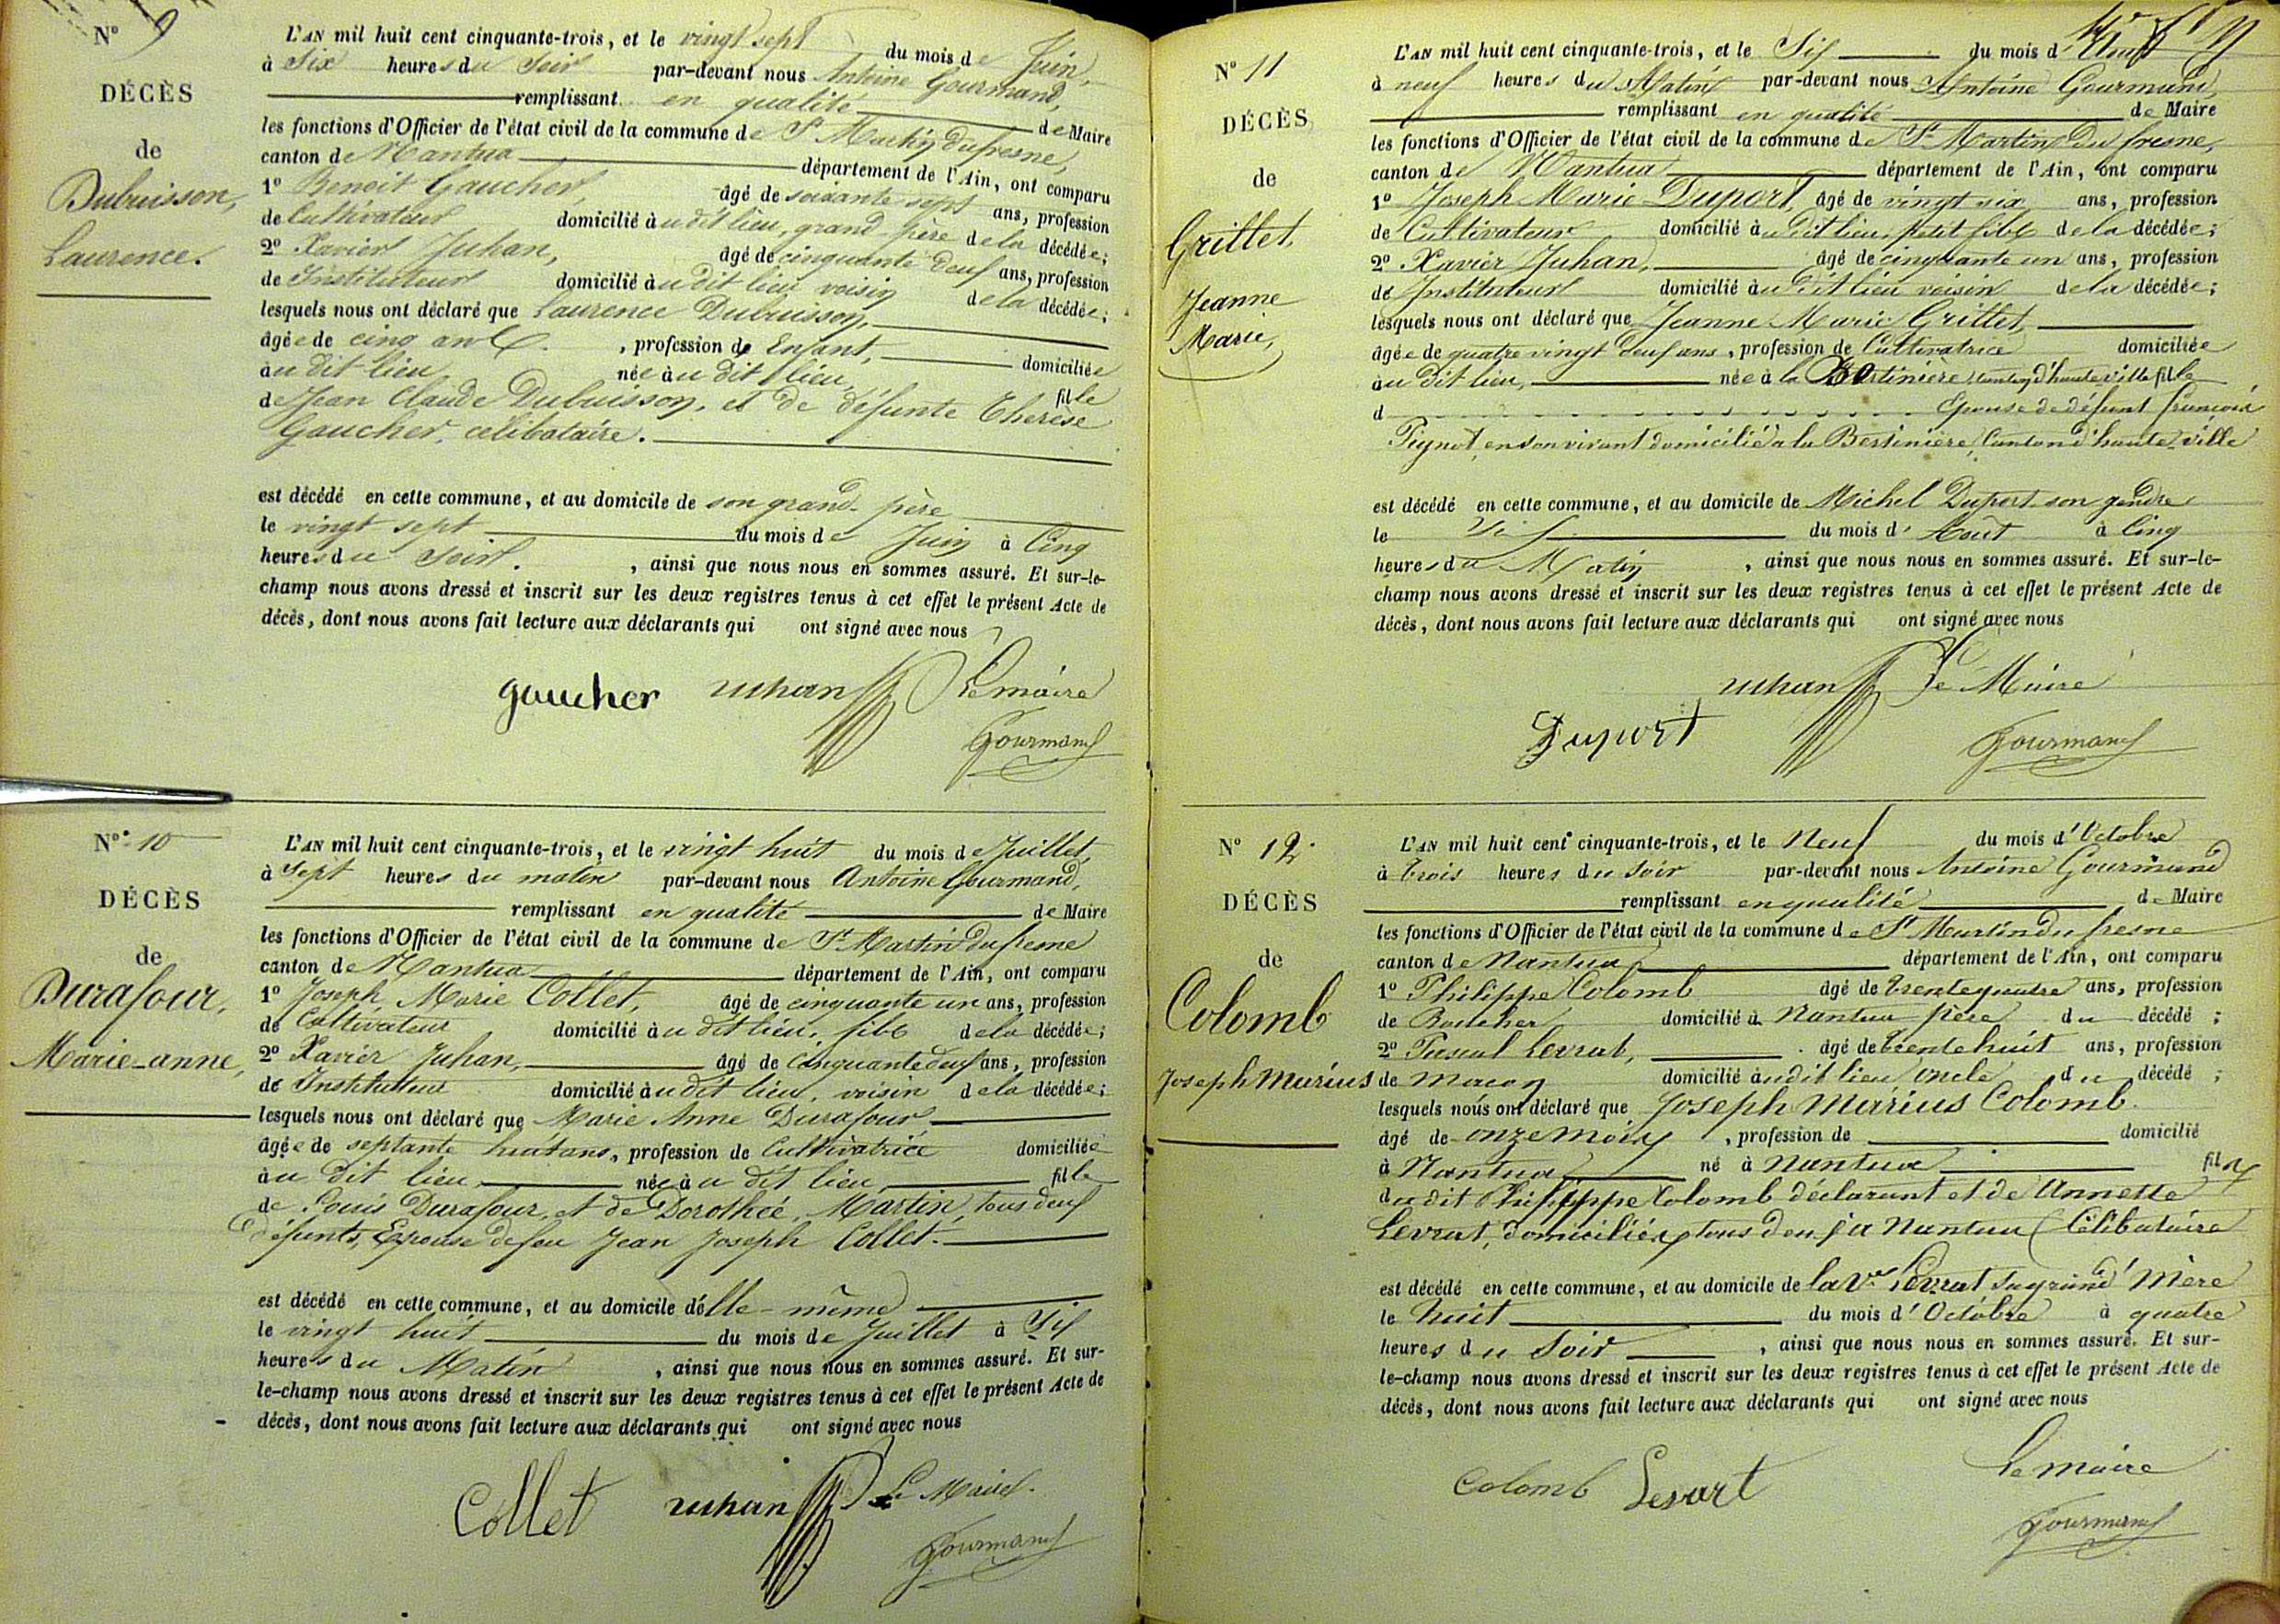 N° 9
DÉCÈS
de
Dubuisson,
Laurence.
L'AN mil huit cent cinquante-trois, et le vingt sept du mois de Juin,
à Six heures du Soir par-devant nous Antoine Gourmand,
remplissant en qualité de Maire
les fonctions d'Officier de l'état civil de la commune de St Martin dufresne,
canton de Nantua département de l'Ain, ont comparu
1° Benoit Gaucher, âgé de soixante sept ans, profession
de Cultivateur domicilié au dit lieu, grand-père de la décédée;
2° Xavier Juhan, âgé de cinquante deux ans, profession
de Instituteur domicilié au dit lieu voisin de la décédée;
lesquels nous ont déclaré que Laurence Dubuisson,
âgée de cinq ans, profession de Enfant, domiciliée
au dit lieu née au dit lieu, fille
de Jean Claude Dubuisson, et de défunte Therèse
Gaucher, célibataire.
est décédé en cette commune, et au domicile de son grand-père
le vingt sept du mois de Juin à Cinq
heures du Soir. , ainsi que nous nous en sommes assuré. Et sur-le-
champ nous avons dressé et inscrit sur les deux registres tenus à cet effet le présent Acte de
décès, dont nous avons fait lecture aux déclarants qui ont signé avec nous
gaucher Juhan Le maire
Gourmand
N° 10
DÉCÈS
de
Durafour,
Marie-anne,
L'AN mil huit cent cinquante-trois, et le vingt huit du mois de Juillet,
à Sept heures du matin par-devant nous Antoine Gourmand,
remplissant en qualité de Maire
les fonctions d'Officier de l'état civil de la commune de St Martin dufresne
canton de Nantua département de l'Ain, ont comparu
1° Joseph Marie Collet, âgé de cinquante un ans, profession
de Cultivateur domicilié au dit lieu, fils de la décédée;
2° Xavier Juhan, âgé de Cinquante deux ans, profession
de Instituteur domicilié au dit lieu, voisin de la décédée;
lesquels nous ont déclaré que Marie Anne Durafour,
âgée de septante huit ans, profession de Cultivatrice domiciliée
au dit lieu, née au dit lieu, fille
de Louis Durafour, et de Dorothée Martin, tous deux
défunts, Epouse de feu Jean Joseph Collet.
est décédé en cette commune, et au domicile d'elle-même
le vingt huit du mois de Juillet à Six
heures du Matin , ainsi que nous nous en sommes assuré. Et sur-
le-champ nous avons dressé et inscrit sur les deux registres tenus à cet effet le présent Acte de
décès, dont nous avons fait lecture aux déclarants qui ont signé avec nous
Collet Juhan Le Maire.
Gourmand
N° 11
DÉCÈS
de
Grillet,
Jeanne
Marie,
L'AN mil huit cent cinquante-trois, et le Six du mois d'Août
à neuf heures du Matin par-devant nous Antoine Gourmand,
remplissant en qualité de Maire
les fonctions d'Officier de l'état civil de la commune de St Martin du fresne,
canton de Nantua département de l'Ain, ont comparu
1° Joseph Marie Duport, âgé de vingt six ans, profession
de Cultivateur domicilié au dit lieu, petit fils de la décédée;
2° Xavier Juhan, âgé de cinquante un ans, profession
de Instituteur domicilié au dit lieu voisin de la décédée;
lesquels nous ont déclaré que Jeanne Marie Grillet,
âgée de quatre vingt deux ans, profession de Cultivatrice domiciliée
au dit lieu, née à la Bertinière, canton d'hauteville fille
d Epouse de défunt françois
Pignot, en son vivant domicilié à la Bertinière, Canton d'hauteville
est décédé en cette commune, et au domicile de Michel Duport son gendre
le Six du mois d' Août à Cinq
heures du Matin , ainsi que nous nous en sommes assuré. Et sur-le-
champ nous avons dressé et inscrit sur les deux registres tenus à cet effet le présent Acte de
décès, dont nous avons fait lecture aux déclarants qui ont signé avec nous
Juhan Le Maire
Duport Gourmand
N° 12
DÉCÈS
de
Colomb
Joseph Marius
L'AN mil huit cent cinquante-trois, et le Neuf du mois d'Octobre
à trois heures du soir par-devant nous Antoine Gourmand
remplissant en qualité de Maire
les fonctions d'Officier de l'état civil de la commune de St Martin du fresne
canton de Nantua département de l'Ain, ont comparu
1° Philippe Colomb âgé de trente quatre ans, profession
de Boucher domicilié à Nantua père du décédé ;
2° Pascal Levrat, âgé de trente huit ans, profession
de Maçon domicilié au dit lieu, oncle du décédé ;
lesquels nous ont déclaré que Joseph Marius Colomb
âgé de onze mois , profession de domicilié
à Nantua né à Nantua fils
du dit Philippe Colomb déclarant et de Annette
Levrat, domiciliés tous deux à Nantua Célibataire
est décédé en cette commune, et au domicile de la Ve Levrat sa grand' Mère
le huit du mois d'Octobre à quatre
heures du Soir , ainsi que nous nous en sommes assuré. Et sur-
le-champ nous avons dressé et inscrit sur les deux registres tenus à cet effet le présent Acte de
décès, dont nous avons fait lecture aux déclarants qui ont signé avec nous
Colomb Levart Le maire
Gourmand